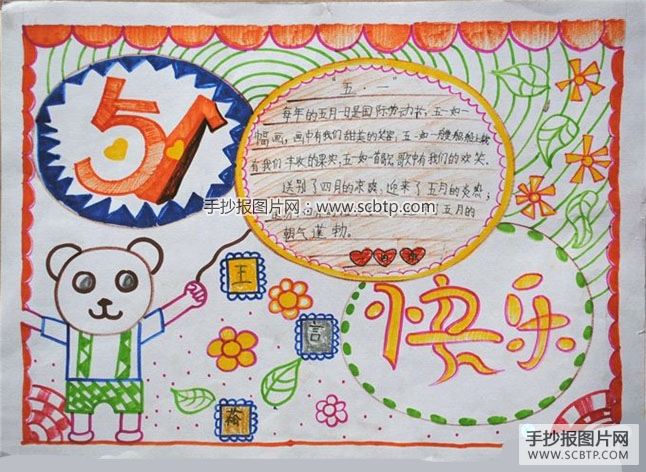 手抄报图片网
www.scbtp.com
51
五·一
每年的五月一日是国际劳动节,五一如一
幅画,画中有我们甜美的笑容;五一如一艘船,船上载
有我们丰收的果实;五一如首歌,歌中有我们的欢笑。
送别了四月的凉爽,迎来了五月的炎热;
手抄报图片网:www.scbtp.com
五月的
朝气蓬勃。
王
言
快乐
手抄报图片网
WWW.SCBTP.COM